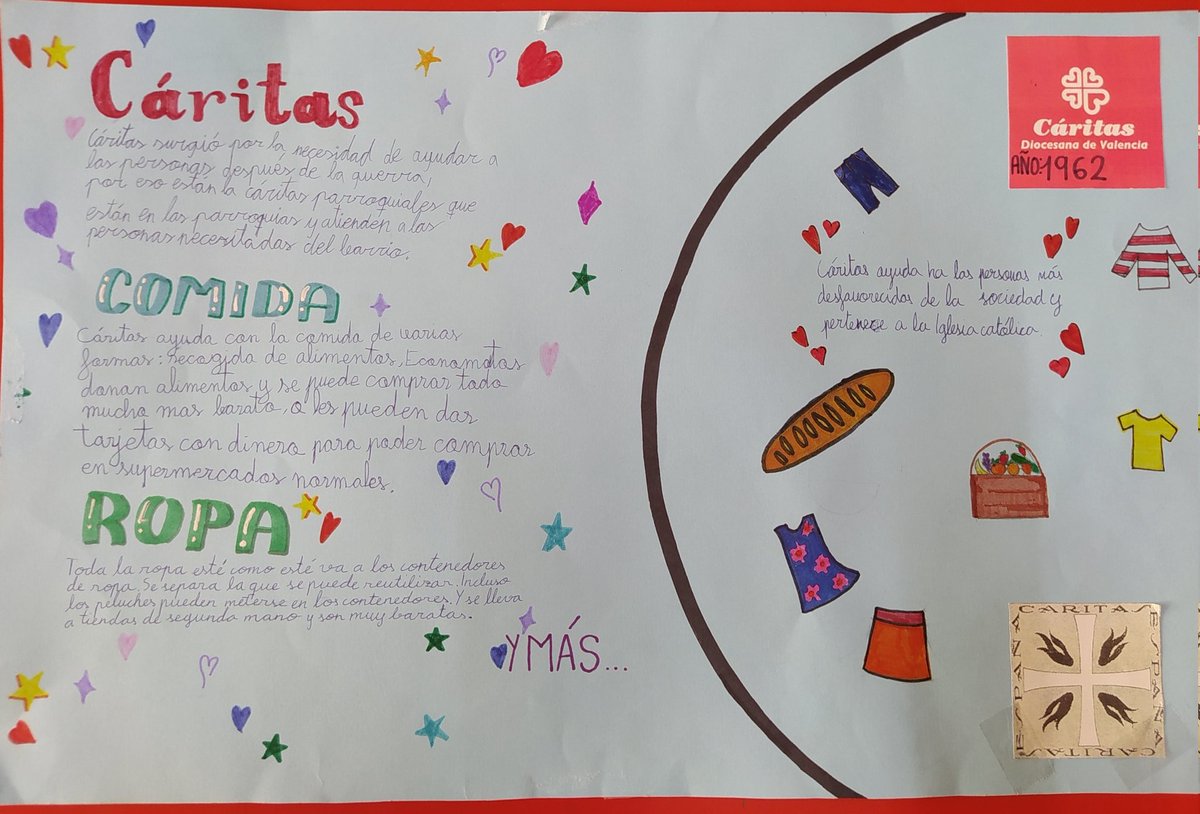 Cáritas
Cáritas surgió por la necesidad de ayudar a
las personas después de la guerra,
por eso están la cáritas parroquiales que
están en las parroquias y atienden a las
personas necesitadas del barrio.
COMIDA
Cáritas ayuda con la comida de varias
formas: Recogida de alimentos, Economatos
donan alimentos y se puede comprar todo
mucho mas barato, o les pueden dar
tarjetas con dinero para poder comprar
en supermercados normales.
ROPA
Toda la ropa esté como esté va a los contenedores
de ropa. Se separa la que se puede reutilizar. Incluso
los peluches pueden meterse en los contenedores. Y se lleva
a tiendas de segunda mano y son muy baratas.
Y MÁS...
Cáritas
Diocesana de Valencia
AÑO:1962
Cáritas ayuda ha las personas más
desfavorecidas de la sociedad y
pertenece a la Iglesia católica.
CARITAS
ESPAÑA
CARITAS
ESPAÑA